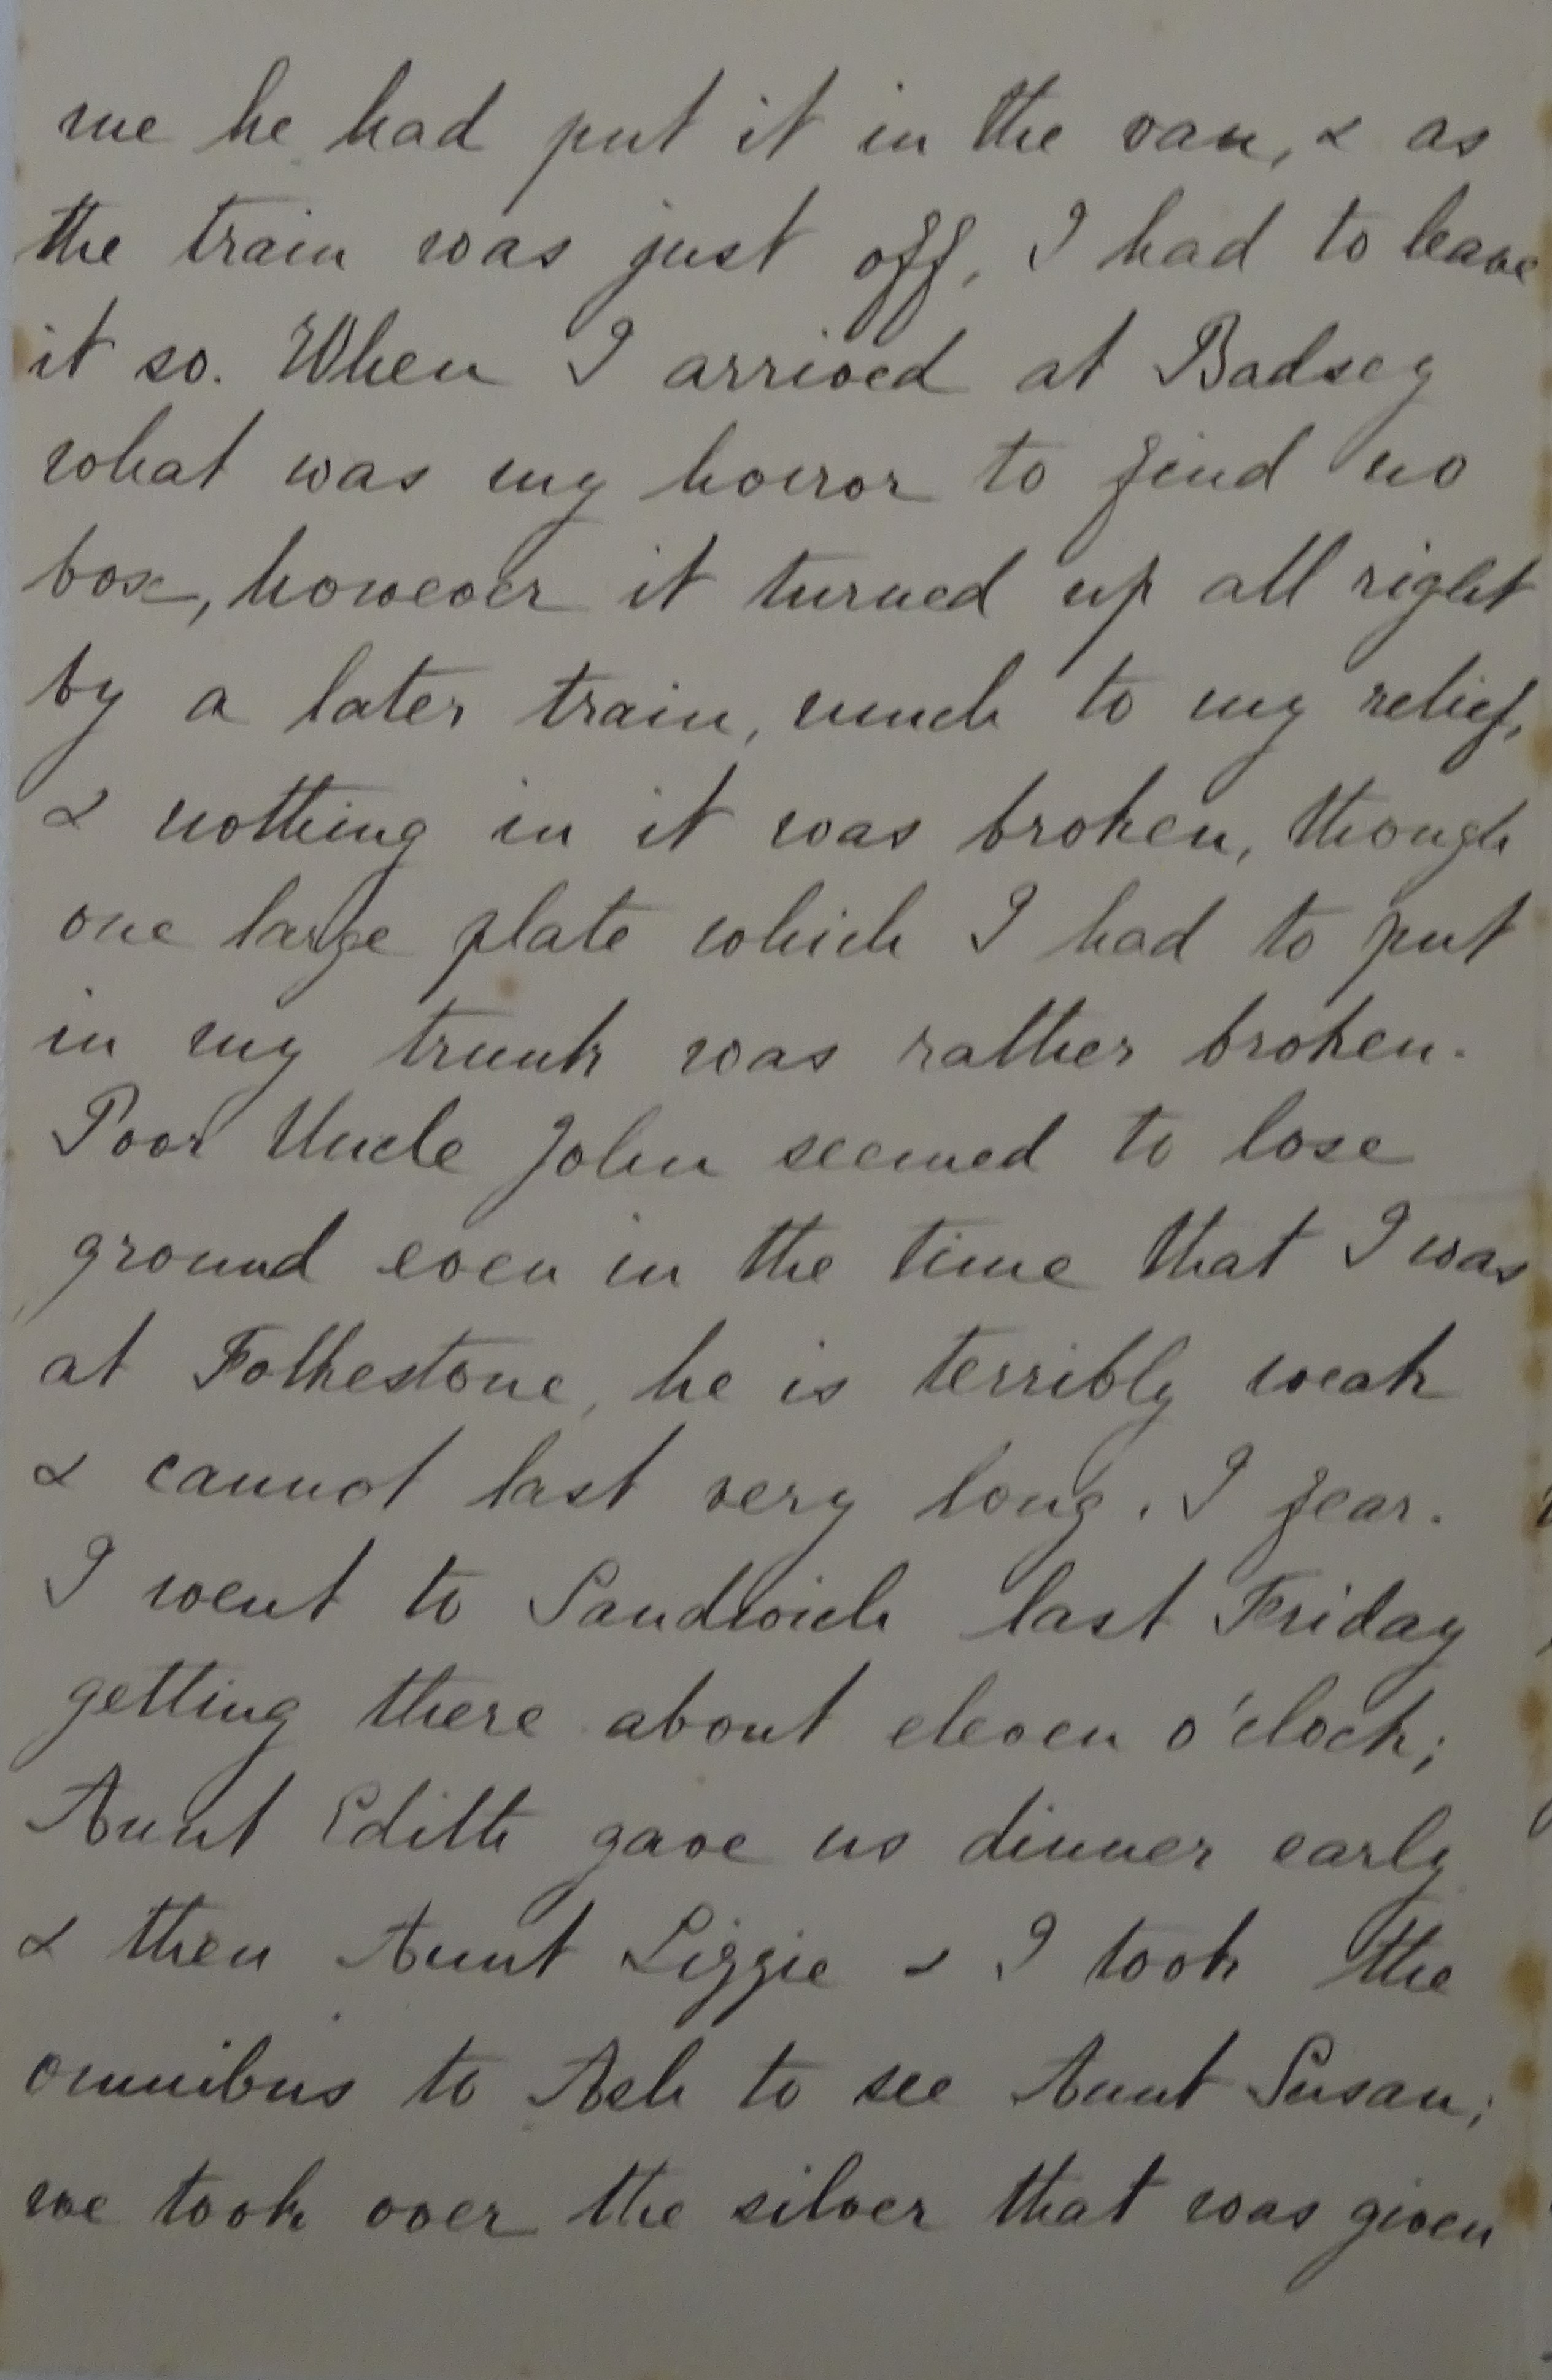 me he had put it in the van, & as
the train was just off, I had to leave
it so. When I arrived at Badsey
what was my horror to find no
box, however it turned up all right
by a later train, much to my relief,
& nothing in it was broken, though
one large plate which I had to put
in my trunk was rather broken.
Poor Uncle John seemed to lose
ground even in the time that I was
at Folkestone, he is terribly weak
& cannot last very long, I fear.
I went to Sandwich last Friday
getting there about eleven o'clock;
Aunt Edith gave us dinner early
& then Aunt Lizzie & I took the
omnibus to Ash to see Aunt Susan;
we took over the silver that was given